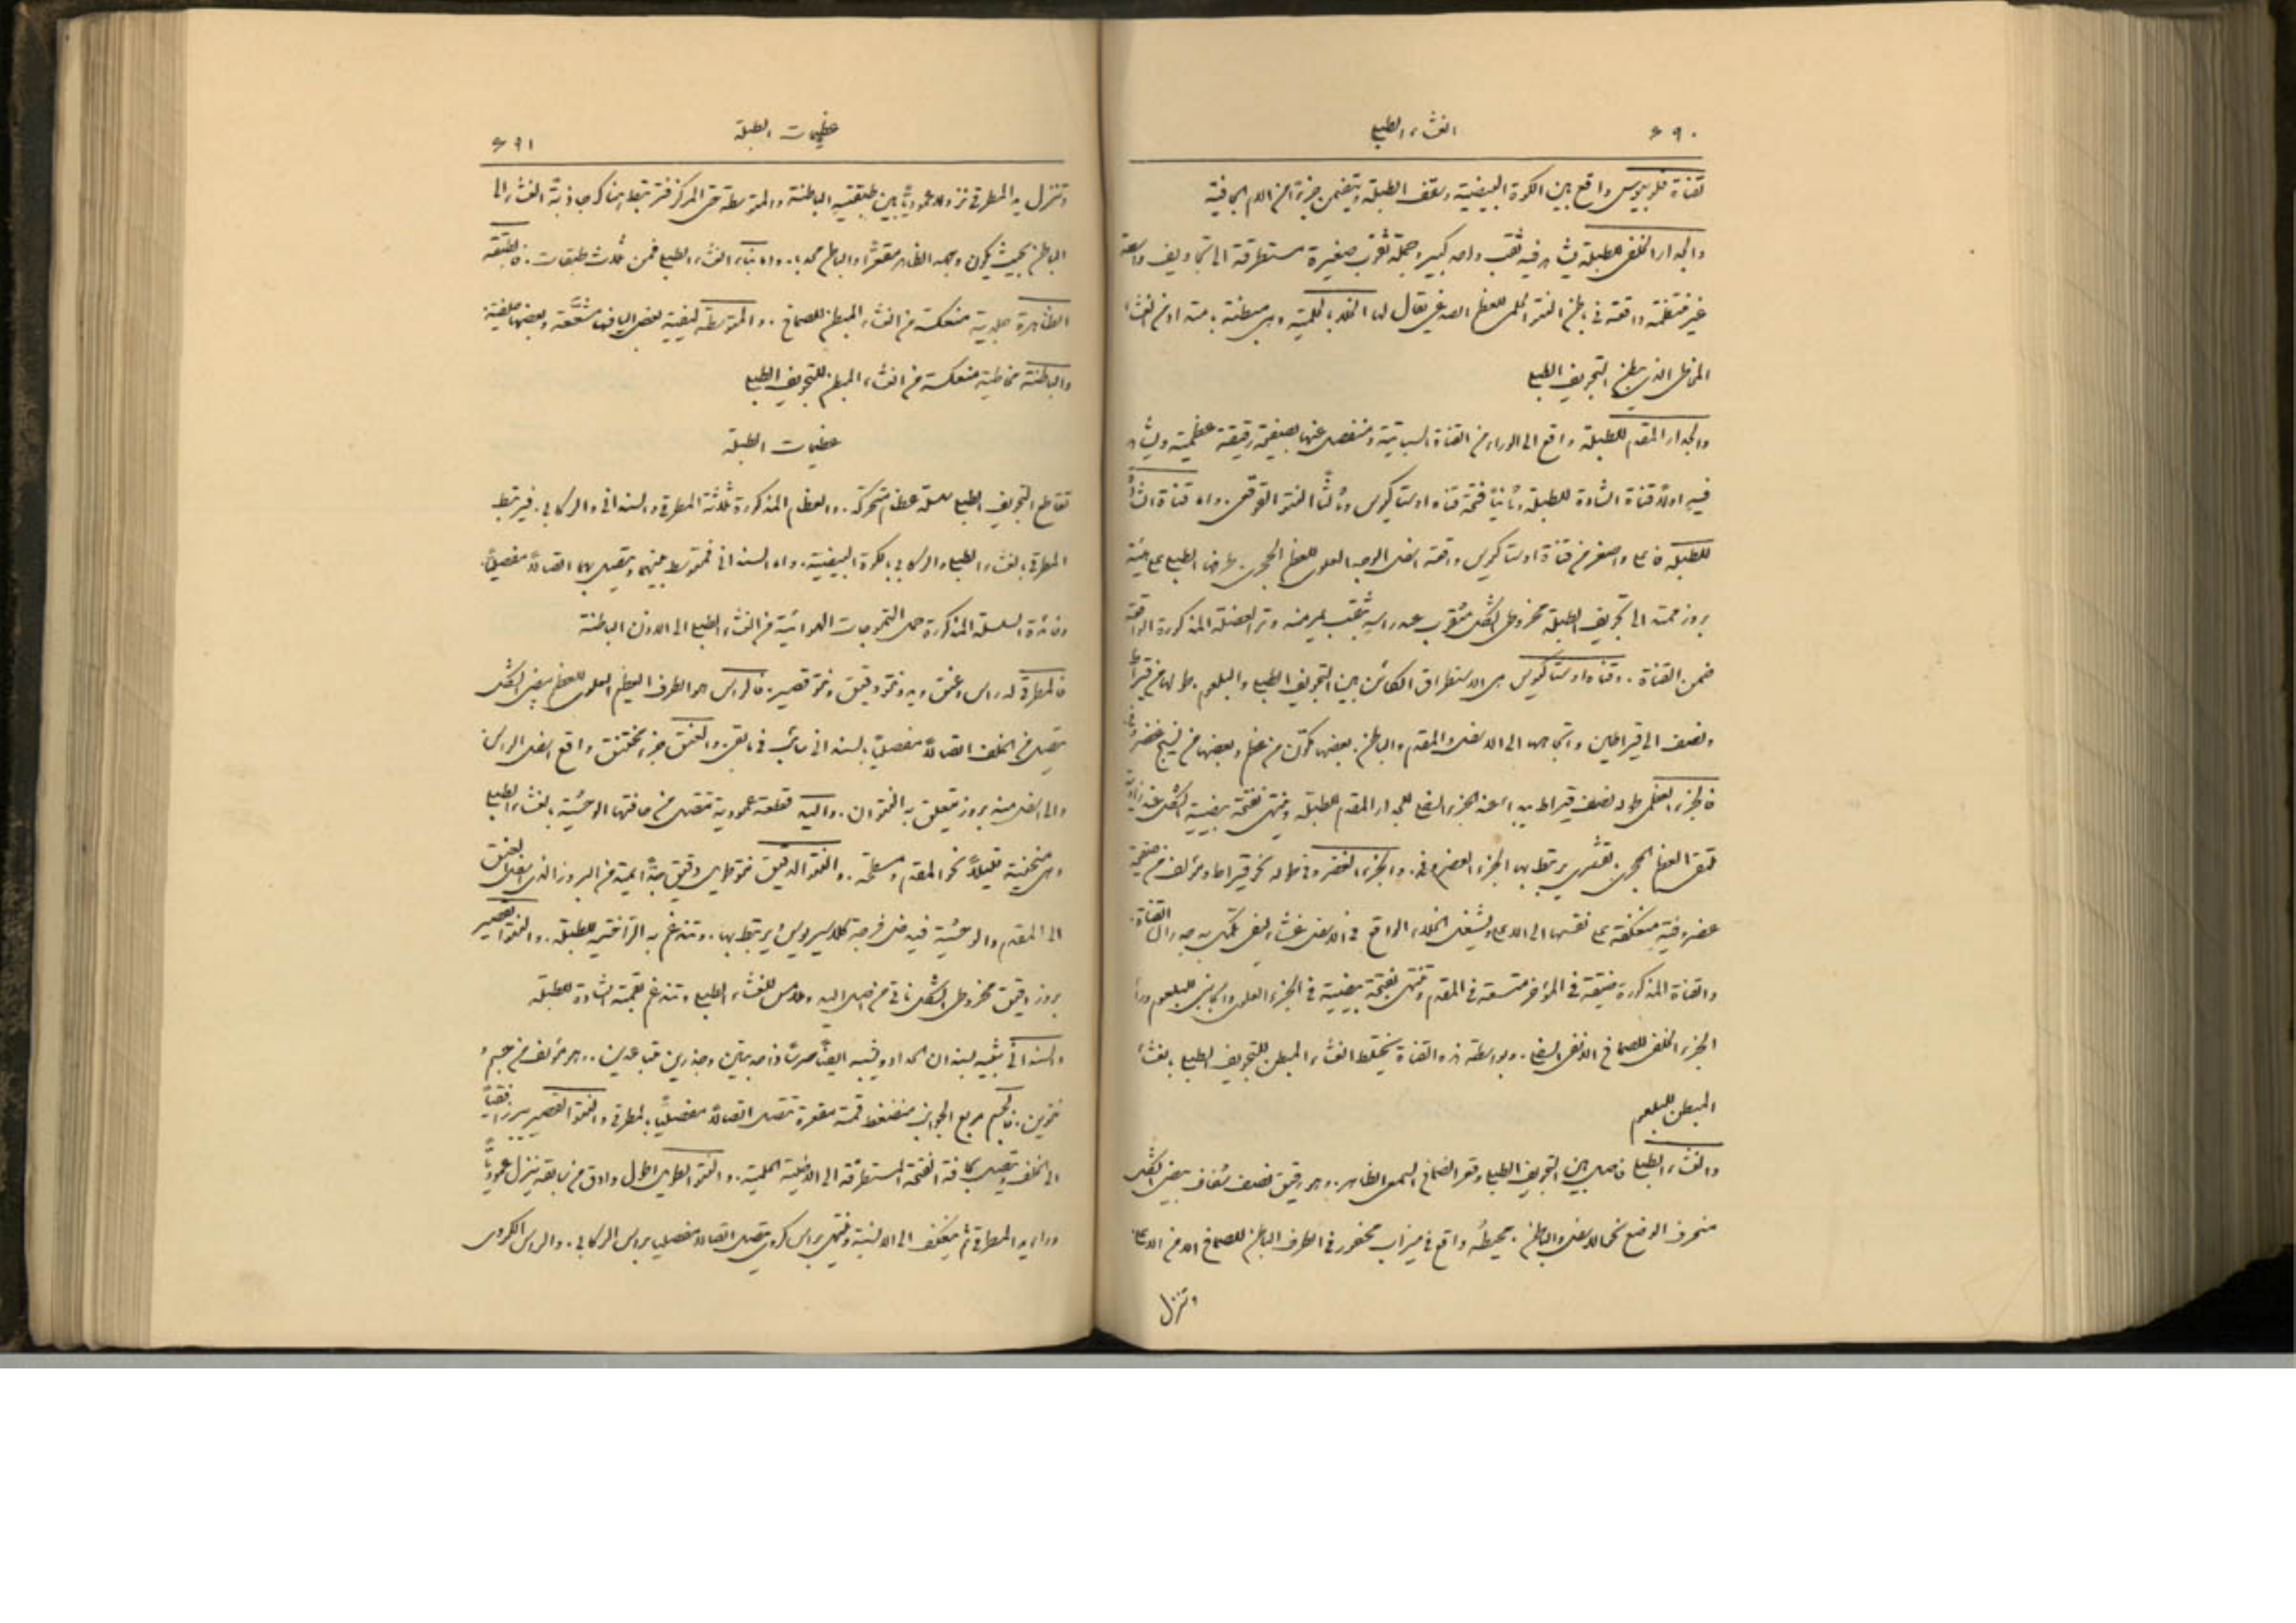 ٤٩٠
الغشاء الطبلي
لقناة فلوبيوس واقع بين الكوة البيضية وسقف الطبلة ويتضمن جزءًا من الام الجافية
والجدار الخلفي للطبلة يشاهد فيه ثقب واحد كبير وجملة ثقوب صغيرة مستطرقة الى تجاويف واسعة
غير منتظمة واقعة في باطن النتو الحلمي للعظم الصدغي يقال لها الخلايا الحلمية وهي مبطنة بامتداد من الغشاء
المخاطي الذي يبطن التجويف الطبلي
والجدار المقدم للطبلة واقع الى الوراء من القناة السباتية ومنفصل عنها بصفيحة رقيقة عظمية ويشاهد
فيه اولًا قناة الشادة للطبلة وثانيًا فتحة قناة اوستاكيوس وثالثًا النتو القوقعي. واما قناة الشادة
للطبلة فاعلى واصغر من قناة اوستاكيوس واقعة اسفل الوجه العلوي للعظم الحجري. طرفها الطبلي على هيئة
بروز ممتد الى تجويف الطبلة مخروطي الشكل مثقوب عند راسه بثقب يمر منه وتر العضلة المذكورة الواقعة
ضمن القناة. وقناة اوستاكيوس هي الاستطراق الكائن بين التجويف الطبلي والبلعوم. طولها من قيراط
ونصف الى قيراطين واتجاهها الى الاسفل والمقدم والباطن. بعضها مكون من عظم وبعضها من نسيج غضروفي
فالجزء العظمي طوله نصف قيراط يبدا عند الجزء السفلي للجدار المقدم للطبلة وينتهي بفتحة بيضية الشكل عند زاوية
تلتقي العظم الحجري بالقشري يرتبط بها الجزء الغضروفي. والجزء الغضروفي طوله نحو قيراط مؤلف من صفيحة
غضروفية منعكفة على نفسها الى الاعلى ويشغل الخلاء الواقع في الاسفل غشاء ليفي تكمل به جدران القناة.
والقناة المذكورة ضيقة في المؤخر متسعة في المقدم وتنتهي بفتحة بيضية في الجزء العلوي والجانبي للبلعوم وراء
الجزء الخلفي للصماخ الانفي السفلي. وبواسطة هذه القناة يختلط الغشاء المبطن للتجويف الطبلي بالغشاء
المبطن للبلعوم
والغشاء الطبلي فاصل بين التجويف الطبلي وقعر الصماخ السمعي الظاهر. وهو رقيق نصف شفاف بيضي الشكل
منحرف الوضع نحو الاسفل والباطن. محيطه واقع في ميزاب محفور في الطرف الباطن للصماخ الا من الاعلى
وتنزل
عظيمات الطبلة
٤٩١
وتنزل يد المطرقي نزولا عموديًّا بين طبقتيه الباطنة والمتوسطة حتى المركز فترتبط هناك جاذبةً الغشاء الى
الباطن بحيث يكون وجهه الظاهر مقعرًا والباطن محدبا. واما بناء الغشاء الطبلي فمن ثلاث طبقات. فالطبقة
الظاهرة جلدية منعكسة من الغشاء المبطن للصماخ. والمتوسطة ليفية بعض اليافها متشععة وبعضها حلقية
والباطنة مخاطية منعكسة من الغشاء المبطن للتجويف الطبلي
عظيمات الطبلة
تقاطع التجويف الطبلي سلسلة عظام متحركة. والعظام المذكورة ثلاثة المطرقي والسنداني والركابي. فيرتبط
المطرقي بالغشاء الطبلي والركابي بالكوة البيضية. واما السنداني فمتوسط بينهما ومتصل بهما اتصالًا مفصليًّا.
وفائدة السلسلة المذكورة حمل التموجات الهوائية من الغشاء الطبلي الى الاذن الباطنة
فالمطرقي له راس وعنق ويد ونتو دقيق ونتو قصير. فالراس هو الطرف العظيم العلوي للعظم بيضي الشكل
يتصل من الخلف اتصالًا مفصليًّا بالسنداني. والعنق جزء مختنق واقع اسفل الراس
والى اسفل منه بروز يتعلق به النتوان. واليد قطعة عمودية تتصل من حافتها الوحشية بالغشاء الطبلي
وهي منحنية قليلًا نحو المقدم ومسطحة. والنتو الدقيق نتو طويل دقيق جدًّا يمتد من البروز الذي اسفل العنق
الى المقدم والوحشية فيدخل فرجة كلاسيريوس ويرتبط بها. وتندغم به المراخية للطبلة. والنتو القصير
بروز دقيق مخروطي الشكل ناتئ من اصل اليد وملامس للغشاء الطبلي وتندغم به الشادة للطبلة
والسنداني شبيه بسندان الحداد ويشبه ايضًا ضرسًا ذا حدبتين وجذرين متباعدين. وهو مؤلف من جسم و
نتوين. فالجسم مربع الجوانب منضغط قمته مقعرة تتصل اتصالًا مفصليًّا بالمطرقي والنتو القصير يبرز افقيًّا
الى الخلف ويتصل بحافة الفتحة المستطرقة الى الاخلية الحلمية. والنتو الطويل اطول وادق من سابقه ينزل عموديًّا
وراء يد المطرقي ثم ينعكف الى الانسية وينتهي براس كروي يتصل اتصالا مفصليا براس الركابي. والراس الكروي